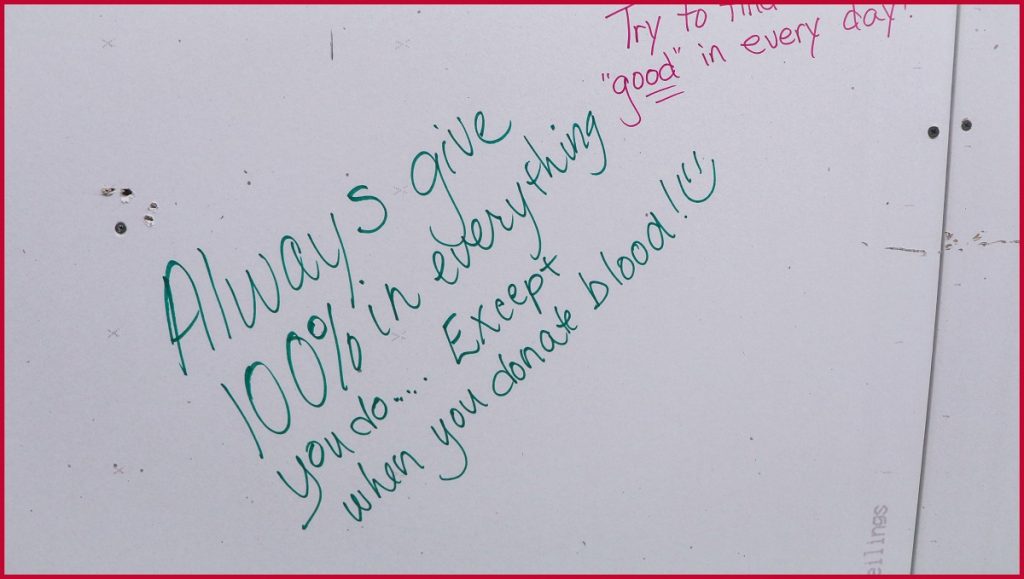 Try to find
"good" in every day!
Always give
100% in everything
you do.... Except
when you donate blood! ☺
eilings